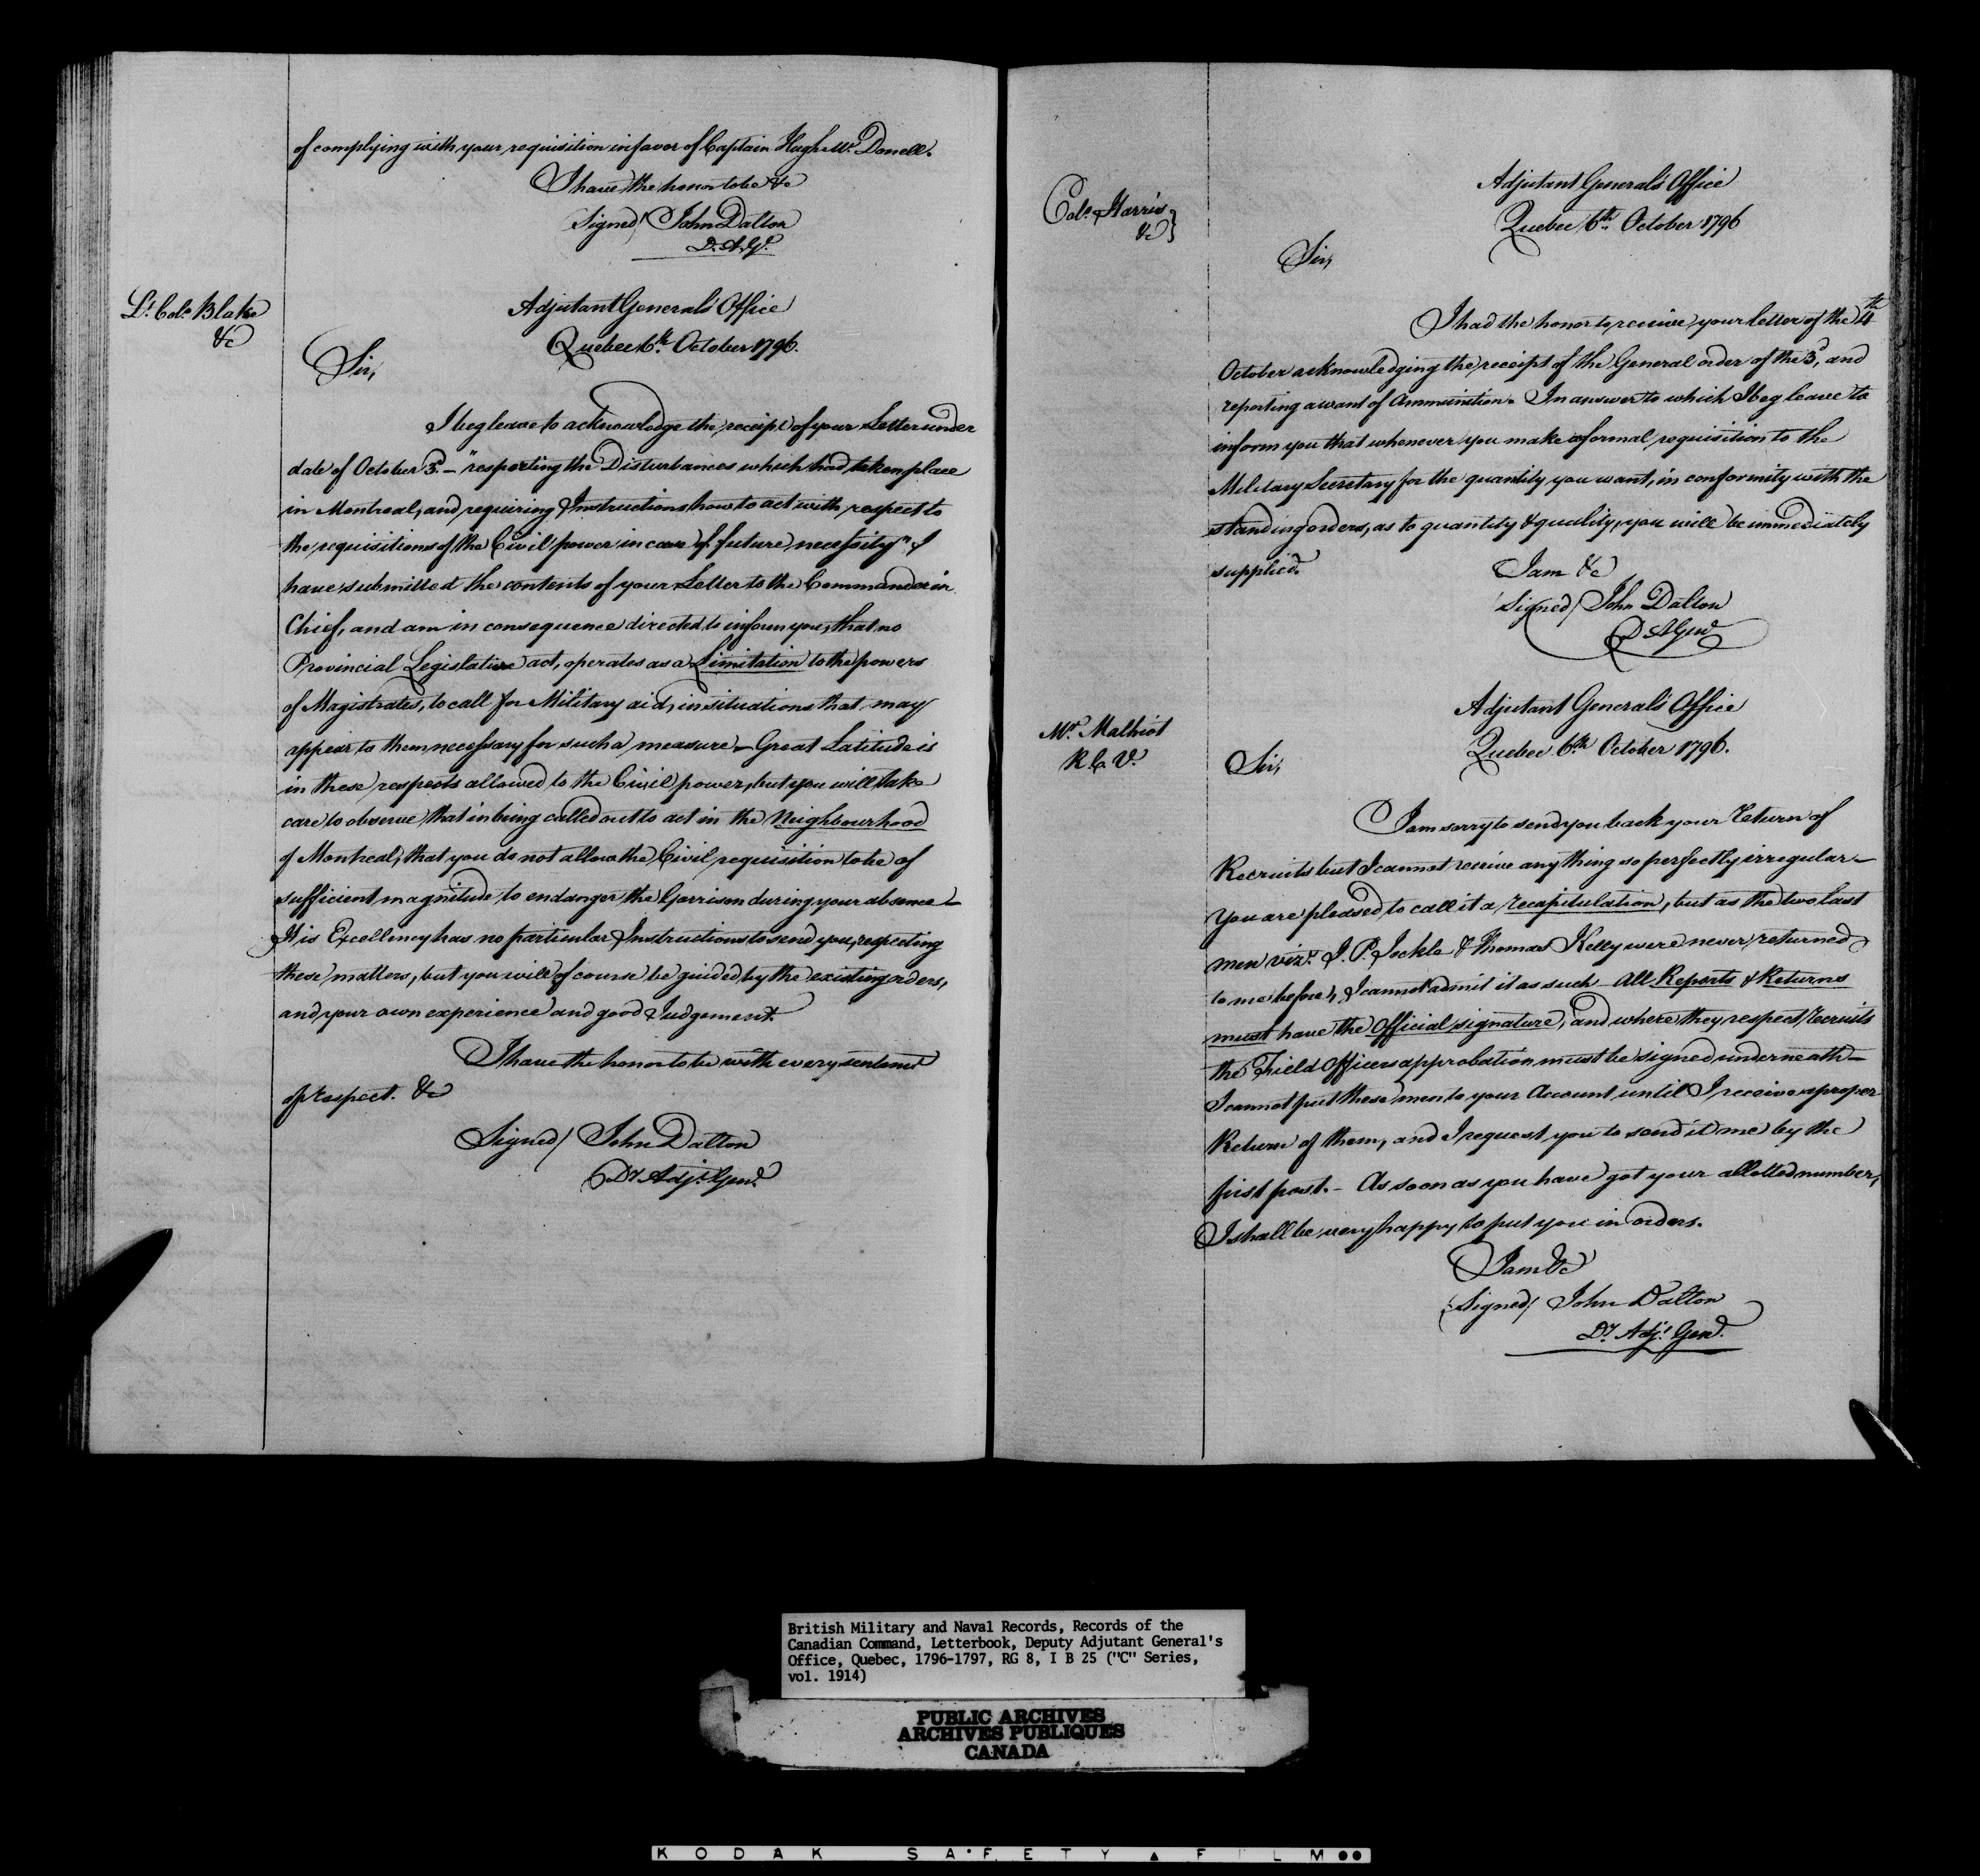 of complying with your requisition in favor of Captain Hugh Mc. Donell.
I have the honor to be &c
Signed/ John Dalton
D. A. Gl.
Lt. Colo. Blake
&c
Adjutant General's Office
Quebec 6th. October 1796.
Sir,
I beg leave to acknowledge the receipt of your Letter under
date of October 3d. – "respecting the Disturbances which had taken place
in Montreal, and requiring Instructions how to act with respect to
the requisitions of the Civil power in case of future necessity" I
have submitted the contents of your Letter to the Commander in
Chief, and am in consequence directed to inform you, that no
Provincial Legislative act, operates as a Limitation to the powers
of Magistrates, to call for Military aid, in situations that may
appear to them necessary for such a measure – Great Latitude is
in these respects allowed to the Civil power, but you will take
care to observe that in being called out to act in the Neighbourhood
of Montreal, that you do not allow the Civil requisition to be of
sufficient magnitude to endanger the Garrison during your absence –
His Excellency has no particular Instructions to send you, respecting
these matters, but you will of course be guided by the existing orders,
and your own experience and good Judgement.
I have the honor to be with every sentiment
of respect. &c
Signed/ John Dalton
Dy. Adjt. Genl.
Colo. Harris
&c
Adjutant General's Office
Quebec 6th. October 1796
Sir,
I had the honor to receive your letter of the 4th
October acknowledging the receipt of the General order of the 3d, and
reporting a want of Ammunition. In answer to which I beg leave to
inform you that whenever you make a formal requisition to the
Military Secretary for the quantity you want, in conformity with the
standing orders, as to quantity & quality, you will be immediately
supplied.
I am &c
Signed/ John Dalton
D A Genl
Mr. Malhiot
R. C. V.
Adjutant General's Office
Quebec 6th October 1796.
Sir,
I am sorry to send you back your Return of
Recruits but I cannot receive any thing so perfectly irregular –
You are pleased to call it a recapitulation, but as the two last
men vizt. J. P. Jockle & Thomas Kelly were never returned
to me before, I cannot admit it as such – All Reports & Returns
must have the official signature, and where they respect Recruits
the Field Officers approbation must be signed underneath –
I cannot put these men to your Account until I receive a proper
Return of them, and I request you to send it me by the
first post. – As soon as you have got your allotted number,
I shall be very happy to put you in orders.
I am &c
Signed/ John Dalton
Dy. Adjt. Genl.
British Military and Naval Records, Records of the
Canadian Command, Letterbook, Deputy Adjutant General's
Office, Quebec, 1796-1797, RG 8, I B 25 ("C" Series,
vol. 1914)
PUBLIC ARCHIVES
ARCHIVES PUBLIQUES
CANADA
KODAK SAFETY FILM